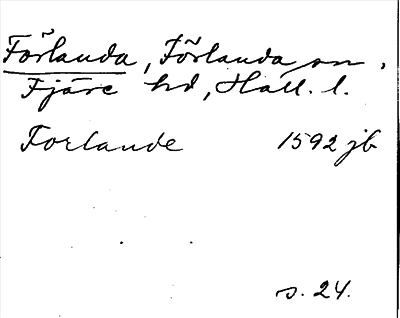 Förlanda, Förlanda sn,
Fjäre hd, Hall. l.
Forlande 1592 jb
s. 24.